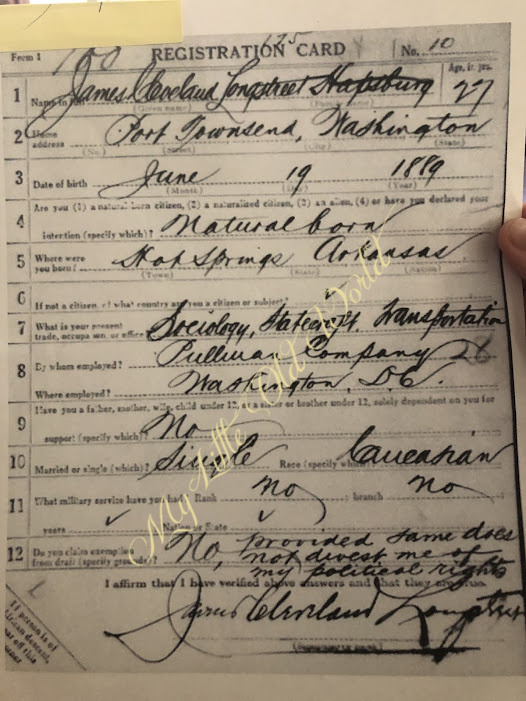 Form 1 REGISTRATION CARD No. 10
125
1 Name in full James Cleveland Longstreet Hapsburg Age, in yrs. 27
(Given name) (Family name)
2 Home address Port Townsend, Washington
(No.) (Street) (City) (State)
3 Date of birth June 19 1889
(Month) (Day) (Year)
4 Are you (1) a natural born citizen, (2) a naturalized citizen, (3) an alien, (4) or have you declared your
intention (specify which)? Natural born
5 Where were you born? Hot Springs Arkansas
(Town) (State) (Nation)
6 If not a citizen, of what country are you a citizen or subject?
7 What is your present trade, occupation, or office? Sociology, Statecraft, Transportation
8 By whom employed? Pullman Company
Where employed? Washington, D.C.
9 Have you a father, mother, wife, child under 12, or a sister or brother under 12, solely dependent on you for
support (specify which)? No
10 Married or single (which)? Single Race (specify which)? Caucasian
11 What military service have you had? Rank no; branch no
years Nation or State
12 Do you claim exemption from draft (specify grounds)? No, provided same does
not divest me of
my political rights
I affirm that I have verified above answers and that they are true.
James Cleveland Longstreet
If person is of
African descent,
tear off this
corner
My Little Old World